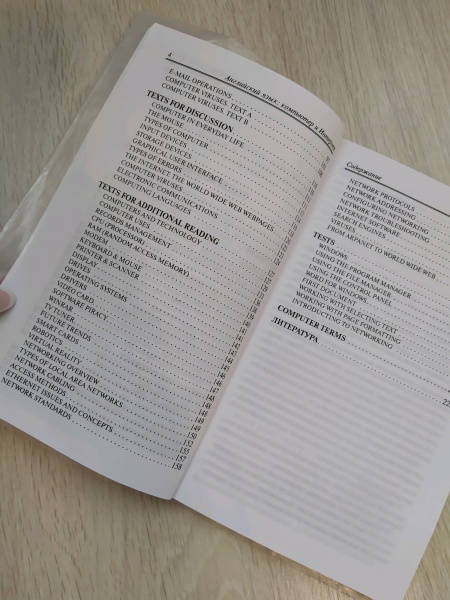 4
Английский язык: компьютер и Интернет
E-MAIL OPERATIONS
COMPUTER VIRUSES. TEXT A
COMPUTER VIRUSES. TEXT B
TEXTS FOR DISCUSSION
COMPUTER IN EVERYDAY LIFE
THE MOUSE
TYPES OF COMPUTER
INPUT DEVICES
STORAGE DEVICES
GRAPHICAL USER INTERFACE
TYPES OF ERRORS
THE INTERNET. THE WORLD WIDE WEB WEBPAGES
COMPUTER VIRUSES
ELECTRONIC COMMUNICATIONS
COMPUTING LANGUAGES
TEXTS FOR ADDITIONAL READING
COMPUTERS AND TECHNOLOGY
COMPUTER USES
RECORDS MANAGEMENT
CPU (PROCESSOR)
RAM (RANDOM ACCESS MEMORY)
MODEM
KEYBOARD & MOUSE
PRINTER & SCANNER
DISPLAY
DRIVES
OPERATING SYSTEMS
DRIVERS
VIDEO CARD
SOFTWARE PIRACY
WINRAR
TV TUNER
FUTURE TRENDS
SMART CARDS
ROBOTICS
VIRTUAL REALITY
NETWORKING OVERVIEW
TYPES OF LOCALAREA NETWORKS
NETWORK CABLING 150
ACCESS METHODS 152
ETHERNET ISSUES AND CONCEPTS 155
NETWORK STANDARDS 157
158
Содержание
NETWORK PROTOCOLS
NETWORK ADDRESSING
CONFIGURING NETWORKING
NETWORK TROUBLESHOOTING
INTERNET SOFTWARE
SEARCH ENGINES
VIRUSES
FROM ARPANET TO WORLD WIDE WEB
TESTS
WINDOWS
USING THE PROGRAM MANAGER
USING THE FILE MANAGER
USING THE CONTROL PANEL
WORD FOR WINDOWS
FIRST DOCUMENT
WORKING WITH SELECTING TEXT
WORKING WITH PAGE FORMATTING
INTRODUCTING TO NETWORKING
COMPUTER TERMS
ЛИТЕРАТУРА